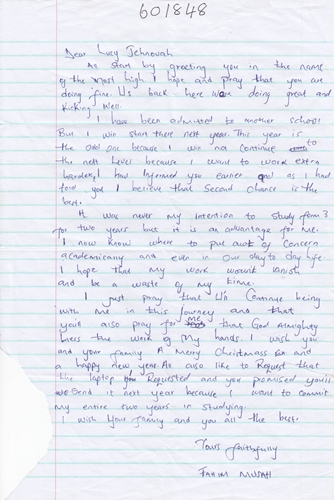 601848
Dear Lucy Jehnovah
As start by greeting you in the name
of the most high I hope and pray that you are
doing fine. Us back here were doing great and
kicking well.
I have been admitted to another school
But I win start there next year. This year is
the odd one because I win no continue to
the next level because I want to work extra
harder, I had informed you earlier and as I had
told you I believe that second chance is the
best.
It was never my intention to study form 3
for two years but it is an advantage for me.
I now know where to put alot of concern
academically and even in our day to day life.
I hope that my work wount vanish
and be a waste of my time.
I just pray that U'll Continue being
with me in this journey and that
you'll also pray for me that God Almighty
bless the work of my hands. I wish you
and your family A Merry Christmass and
a happy new year. As also like to Request that
the laptop you Requested and you promised you'll
send it next year because I want to commit
my entire two years in studying.
I wish your family and you all the best.
Yours faithfully
FAHIM MUSAH